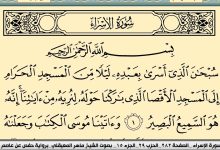 سُورَةُ الإِسْرَاءِ
بِسْمِ اللَّهِ الرَّحْمَٰنِ الرَّحِيمِ
سُبْحَٰنَ الَّذِي أَسْرَىٰ بِعَبْدِهِ لَيْلًا مِّنَ الْمَسْجِدِ الْحَرَامِ
إِلَى الْمَسْجِدِ الْأَقْصَا الَّذِي بَٰرَكْنَا حَوْلَهُ لِنُرِيَهُ مِنْ ءَايَٰتِنَا إِنَّهُ
هُوَ السَّمِيعُ الْبَصِيرُ ١ وَءَاتَيْنَا مُوسَى الْكِتَٰبَ وَجَعَلْنَٰهُ
سورة الإسراء . الصفحة ٢٨٢ . الجزء ١٥ . بصوت الشيخ ماهر المعيقلي . برواية حفص عن عاصم